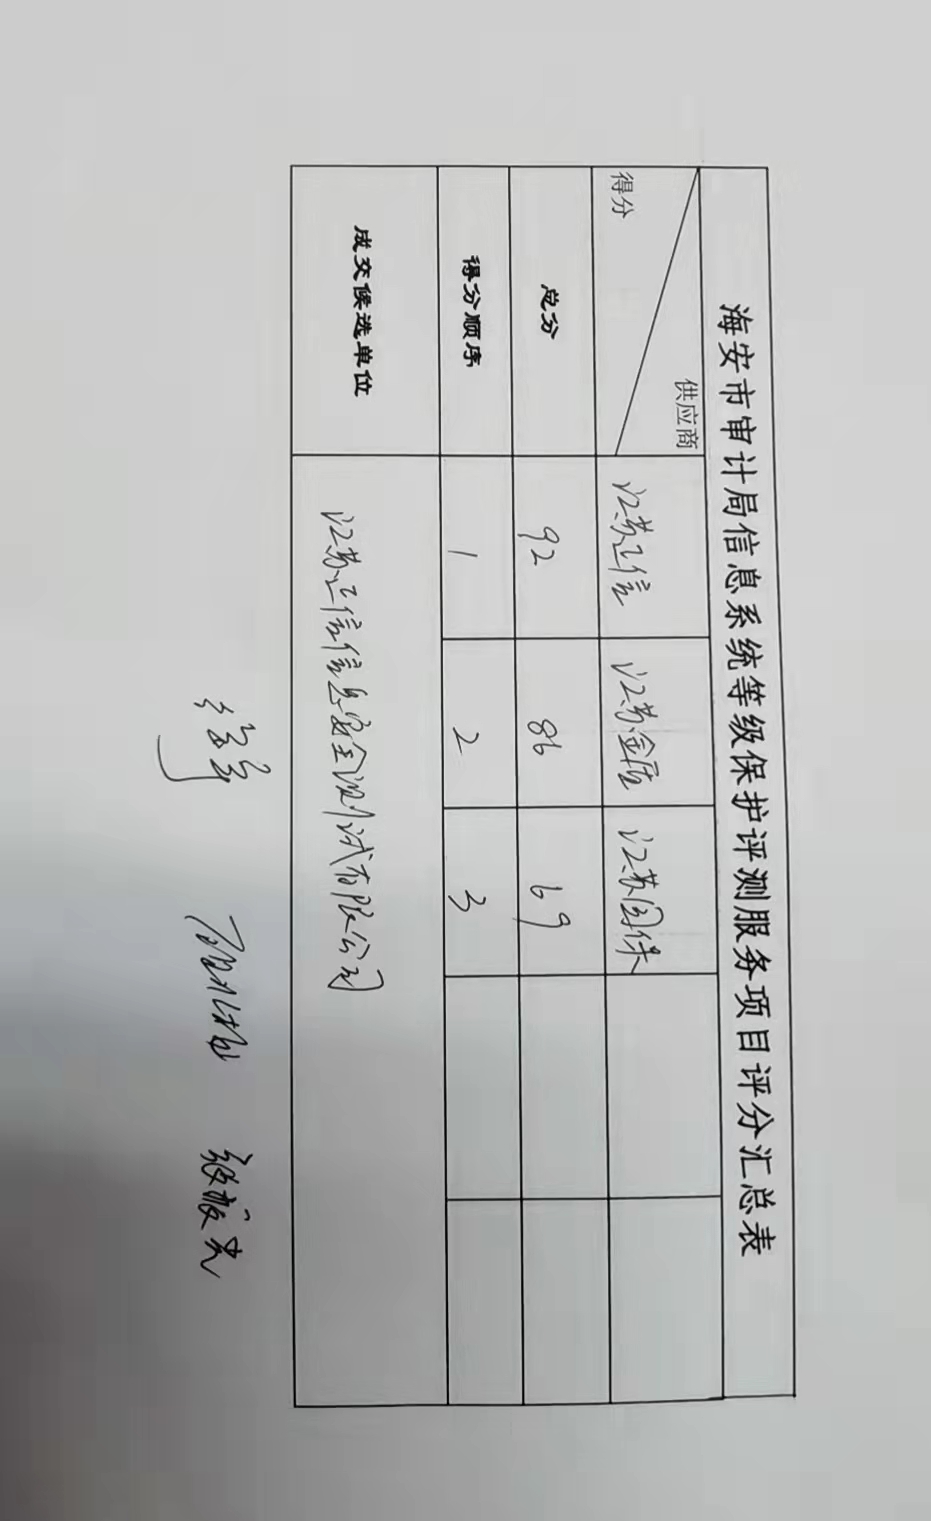 海安市审计局信息系统等级保护评测服务项目评分汇总表
供应商
得分
江苏正信 江苏金盾 江苏国保
总分 92 86 69
得分顺序 1 2 3
成交候选单位 江苏正信信息安全测试有限公司